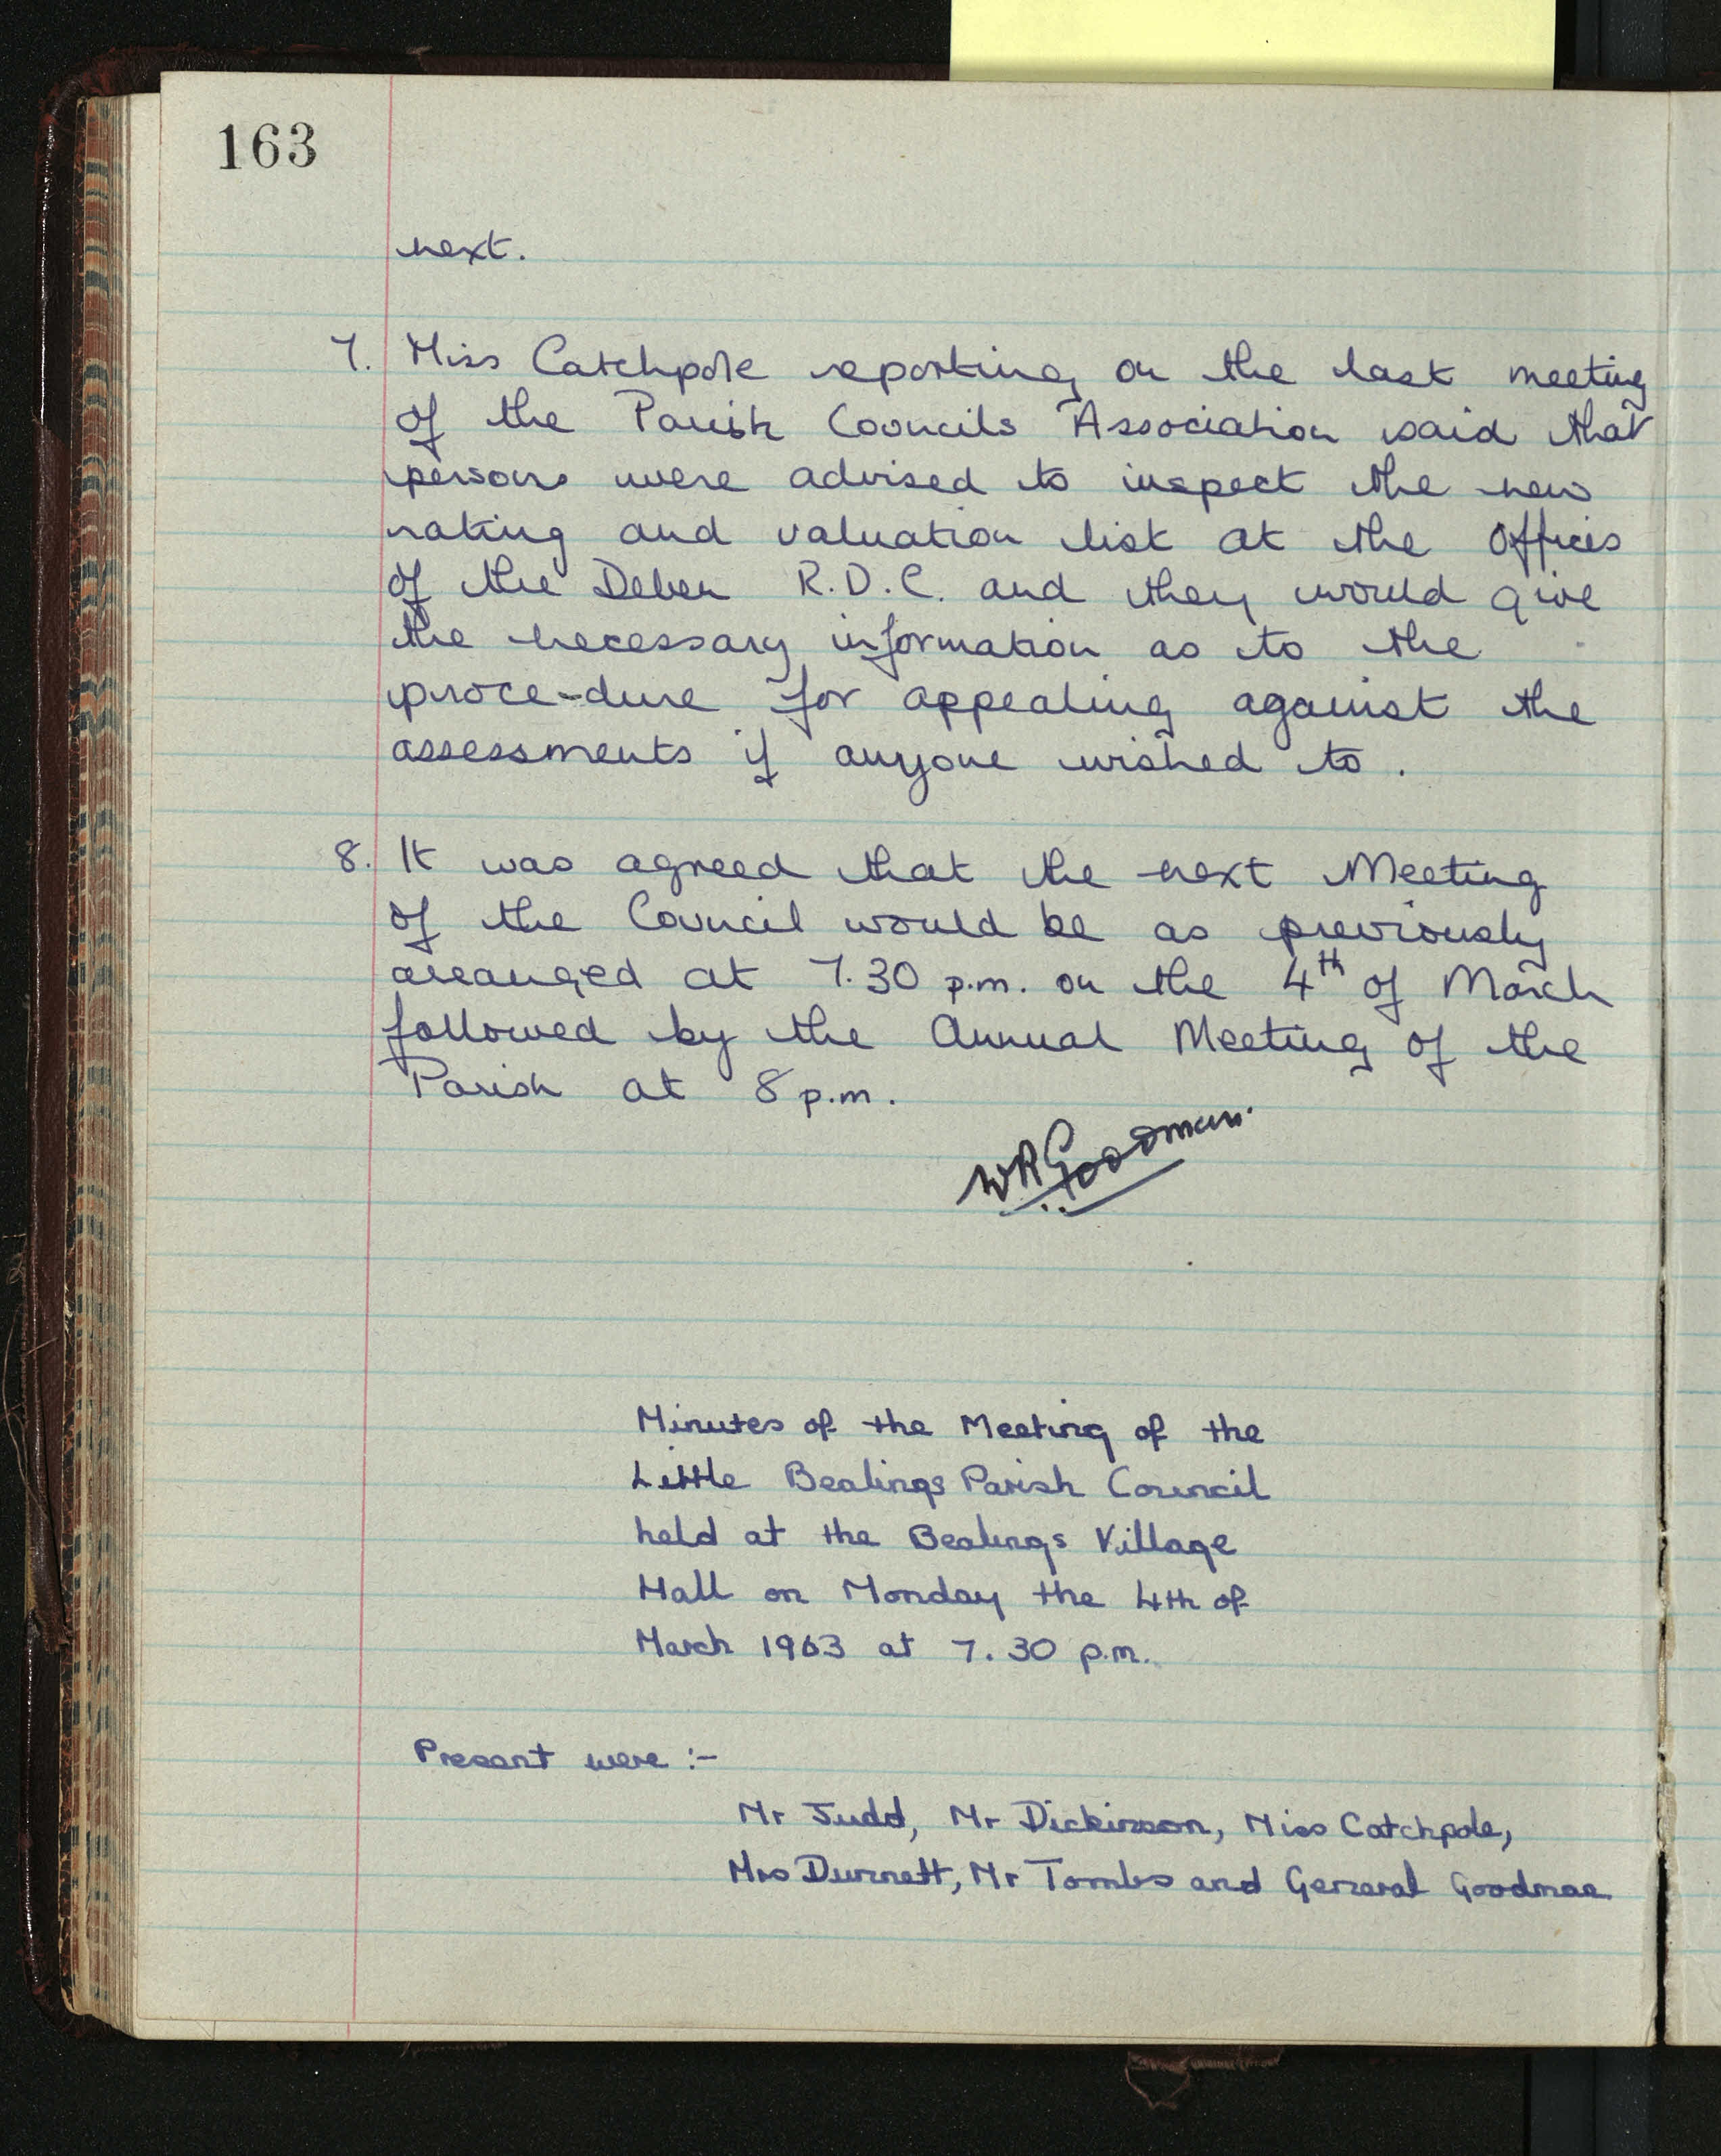 163
next.
7. Miss Catchpole reporting on the last meeting
of the Parish Councils Association said that
persons were advised to inspect the new
rating and valuation list at the Offices
of the Deben R.D.C. and they would give
the necessary information as to the
proce-dure for appealing against the
assessments if anyone wished to.
8. It was agreed that the next Meeting
of the Council would be as previously
arranged at 7.30 p.m. on the 4th of March
followed by the Annual Meeting of the
Parish at 8 p.m.
WRGoodman.
Minutes of the Meeting of the
Little Bealings Parish Council
held at the Bealings Village
Hall on Monday the 4th of
March 1963 at 7.30 p.m.
Present were :-
Mr Judd, Mr Dickinson, Miss Catchpole,
Mrs Durnett, Mr Tombs and General Goodman